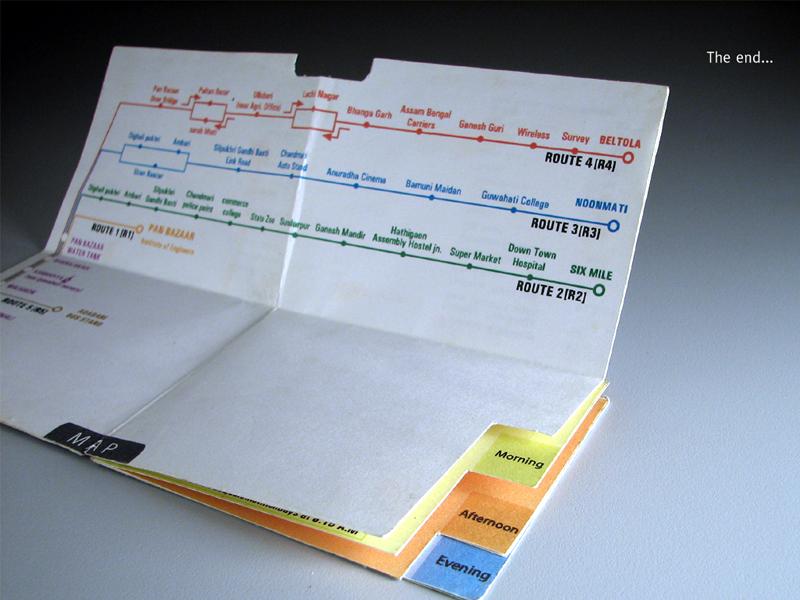 The end...
Pan Bazaar
Over Bridge
Paltan Bazar
Ulubari
(near Agri. Office)
Lachit Nagar
Bhanga Garh
Assam Bengal
Carriers
Ganesh Guri
Wireless
Survey
BELTOLA
ROUTE 4[R4]
Dighali pukhri
Ambari
Silpukhri Gandhi Basti
Link Road
Chandmari
Auto Stand
Anuradha Cinema
Bamuni Maidan
Guwahati College
NOONMATI
ROUTE 3[R3]
Dighali pukhri
Ambari
Silpukhri
Gandhi Basti
Chandmari
police point
commerce
college
State Zoo
Sundarpur
Ganesh Mandir
Hathigaon
Assembly Hostel jn.
Super Market
Down Town
Hospital
SIX MILE
ROUTE 2[R2]
ROUTE 1[R1]
PAN BAZAAR
Institute of Engineers
PAN BAZAAR
WATER TANK
ROUTE 5[R5]
ADABARI
BUS STAND
MAP
Morning
Afternoon
Evening